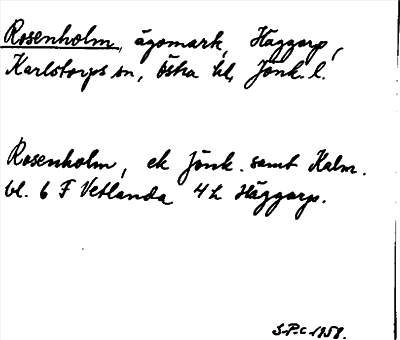 Rosenholm, ägomark, Häggarp,
Karlstorps sn, Östra hd, Jönk. l.
Rosenholm, ek Jönk. samt Kalm.
bl. 6 F Vetlanda 4 h Häggarp.
S.P.C. 1958.